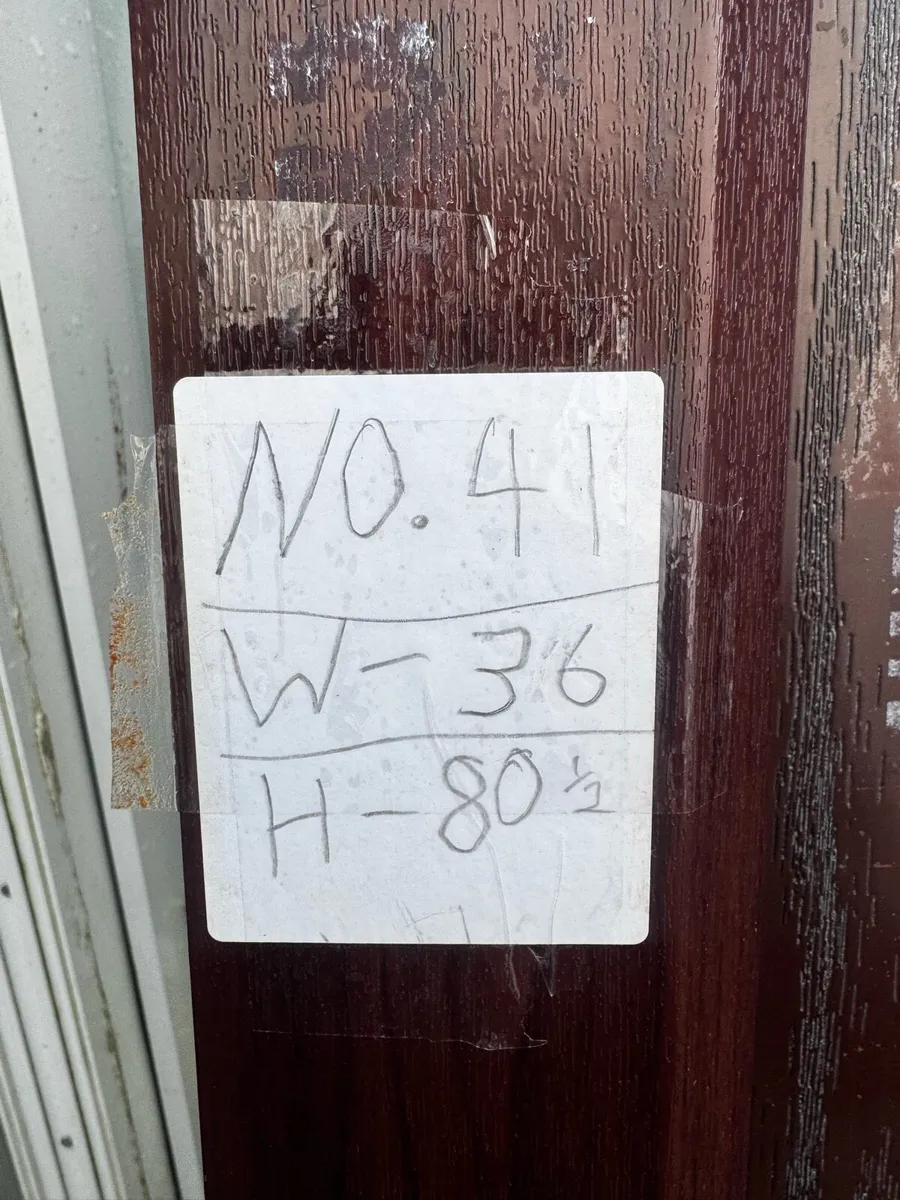 NO. 41
W - 36
H - 80 ½